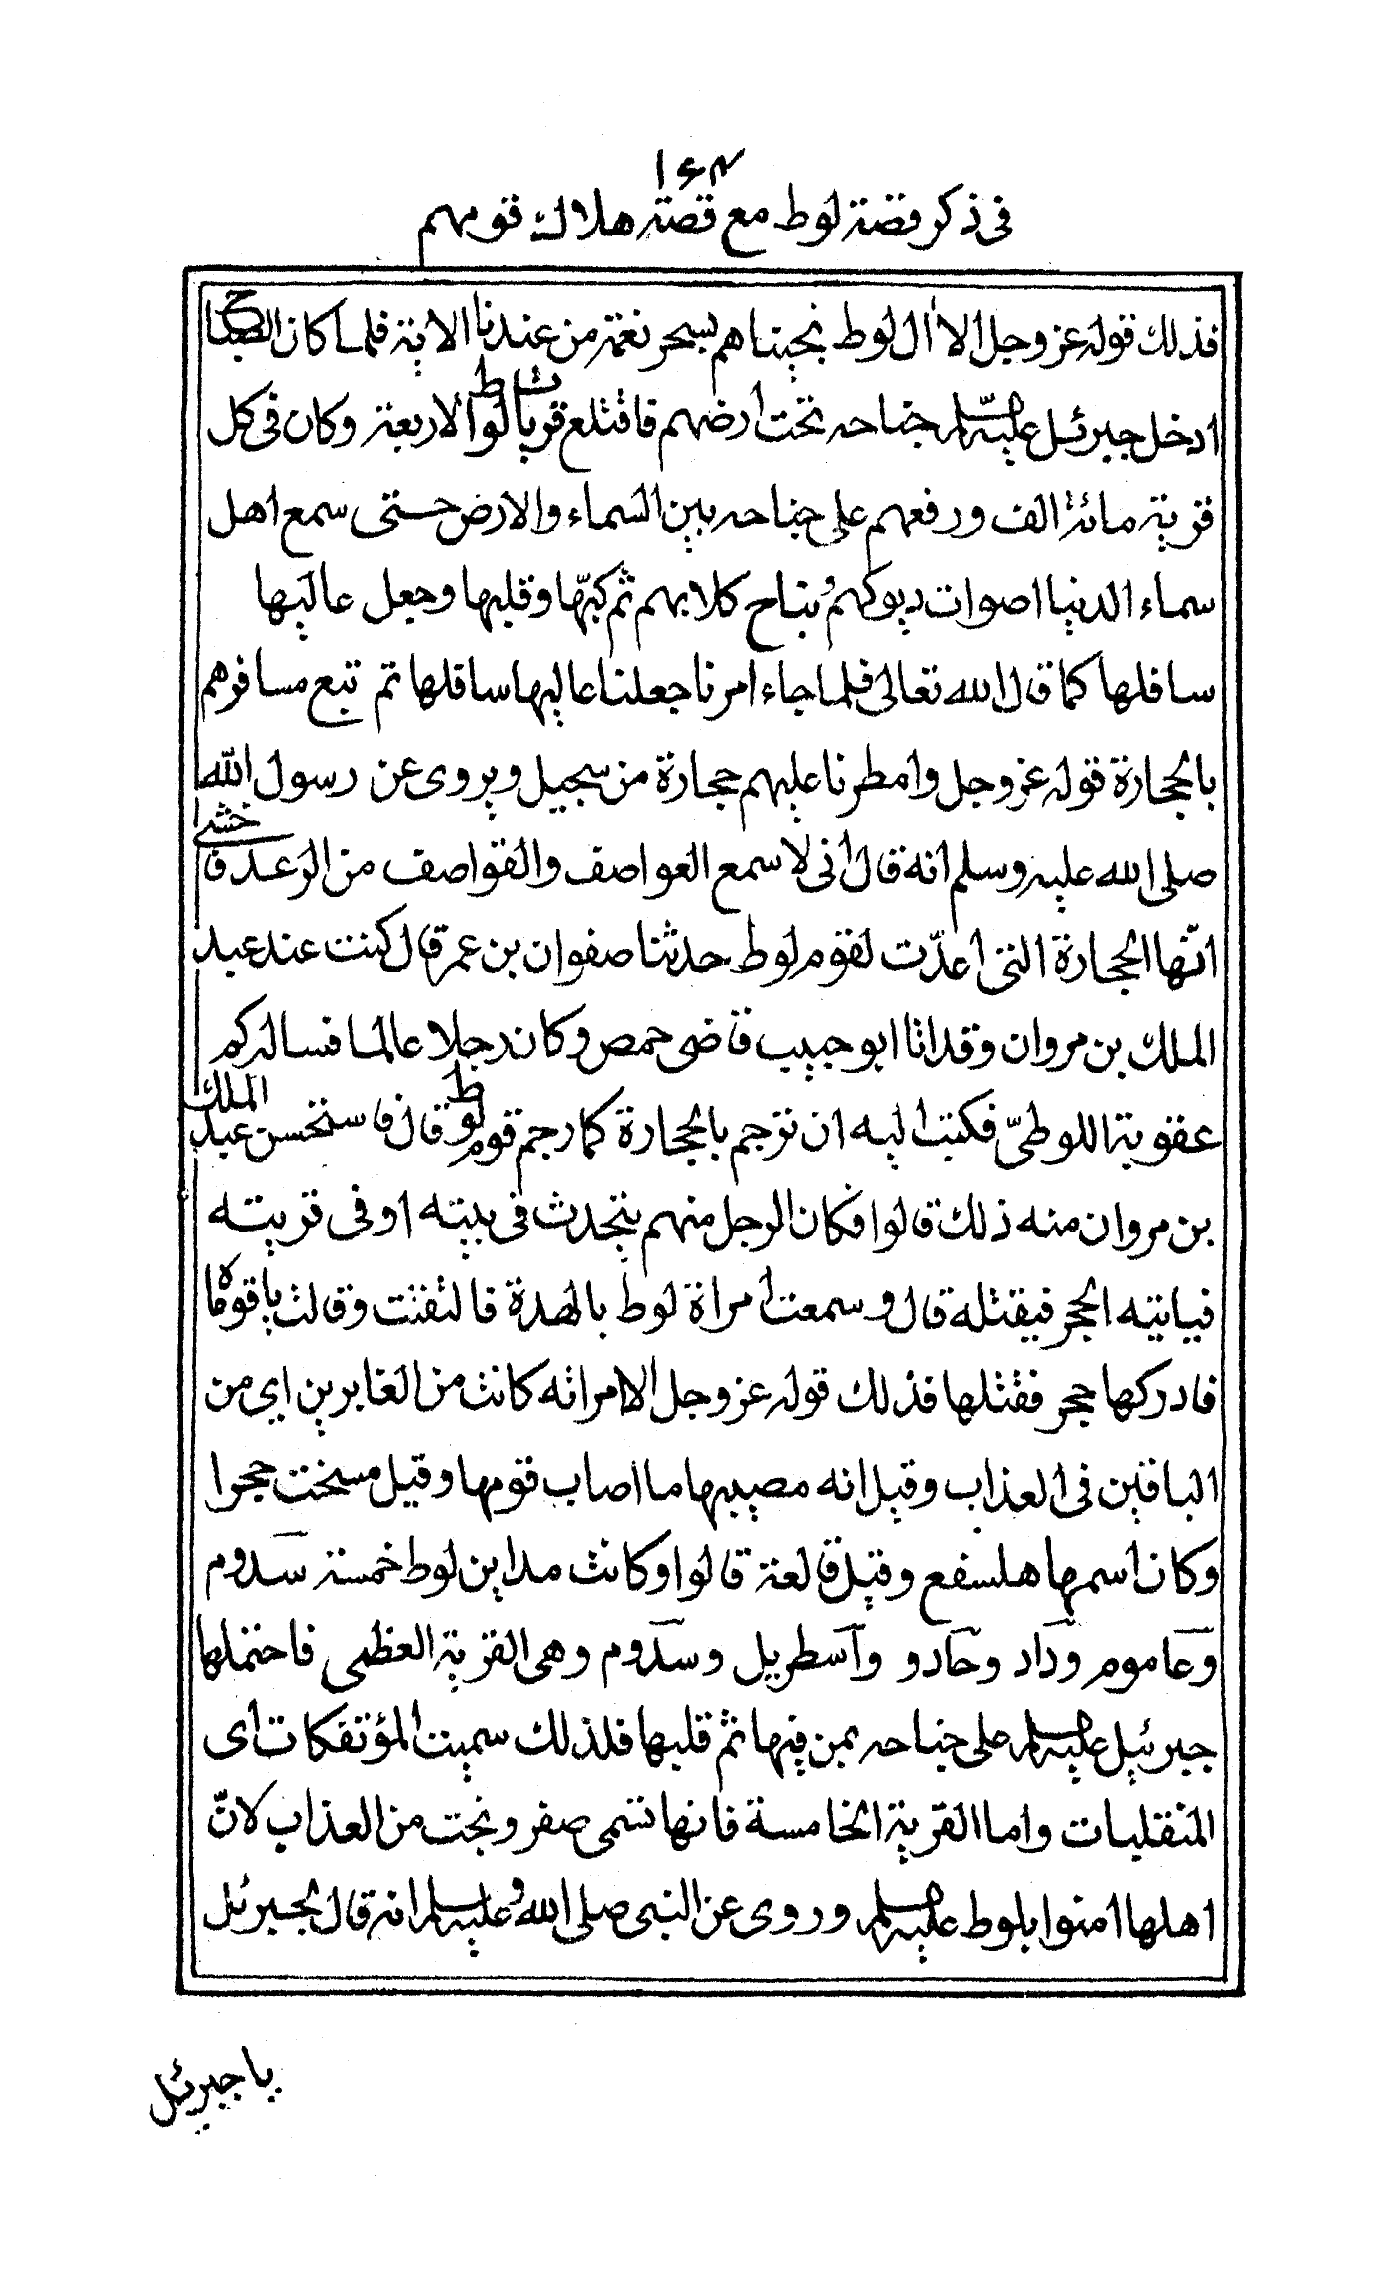 ١٦٤
فى ذكر قصة لوط مع قصة هلاك قومهم
فذلك قوله عز وجل الا ال لوط نجيناهم بسحر نعمة من عندنا الاية فلما كان الصبح
ادخل جبرئيل عليه السلام جناحه تحت ارضهم فاقتلع قريات لوط الاربعة وكان فى كل
قرية مائة الف ورفعهم على جناحه بين السماء والارض حتى سمع اهل
سماء الدنيا اصوات ديوكهم ونباح كلابهم ثم كبّها وقلبها وجعل عاليها
سافلها كما قال الله تعالى فلما جاء امرنا جعلنا عاليها سافلها ثم تبع مسافرهم
بالحجارة قوله عز وجل وامطرنا عليهم حجارة من سجيل ويروى عن رسول الله
صلى الله عليه وسلم انه قال انى لاسمع العواصف والقواصف من الرعد فاخشى
انّها الحجارة التى اعدّت لقوم لوط حدثنا صفوان بن عمر قال كنت عند عبد
الملك بن مروان وقد اتا ابو حبيب قاضى حمص وكان رجلا عالما فساله كم
عقوبة اللوطىّ فكتب اليه ان ترجم بالحجارة كما رجم قوم لوط قال فاستحسن عبد الملك
بن مروان منه ذلك قالوا فكان الرجل منهم يتحدث فى بيته او فى قريته
فياتيه الحجر فيقتله قال وسمعت امراة لوط بالهدة فالتفتت وقالت يا قوماه
فادركها حجر فقتلها فذلك قوله عز وجل الا امراته كانت من الغابرين اي من
الباقين فى العذاب وقيل انه مصيبها ما اصاب قومها وقيل مسخت حجرا
وكان اسمها هلسفع وقيل قالعة قالوا وكانت مداين لوط خمسة سدوم
وعاموم وداد وحادو واسطريل وسدوم وهى القرية العظمى فاحتملها
جبرئيل عليه السلام على جناحه بمن فيها ثم قلبها فلذلك سميت المؤتفكات اى
المنقلبات واما القرية الخامسة فانها تسمى صفر ونجت من العذاب لانّ
اهلها امنوا بلوط عليه السلام وروى عن النبى صلى الله عليه وسلم انه قال لجبرئل
يا جبرئيل